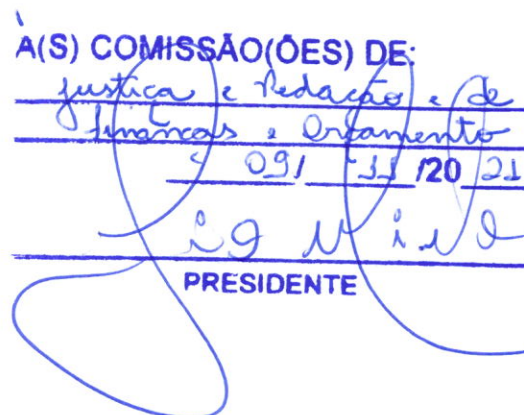 À(S) COMISSÃO(ÕES) DE:
Justiça e Redação e de
finanças e Orçamento
09/ 11 /20 21
PRESIDENTE